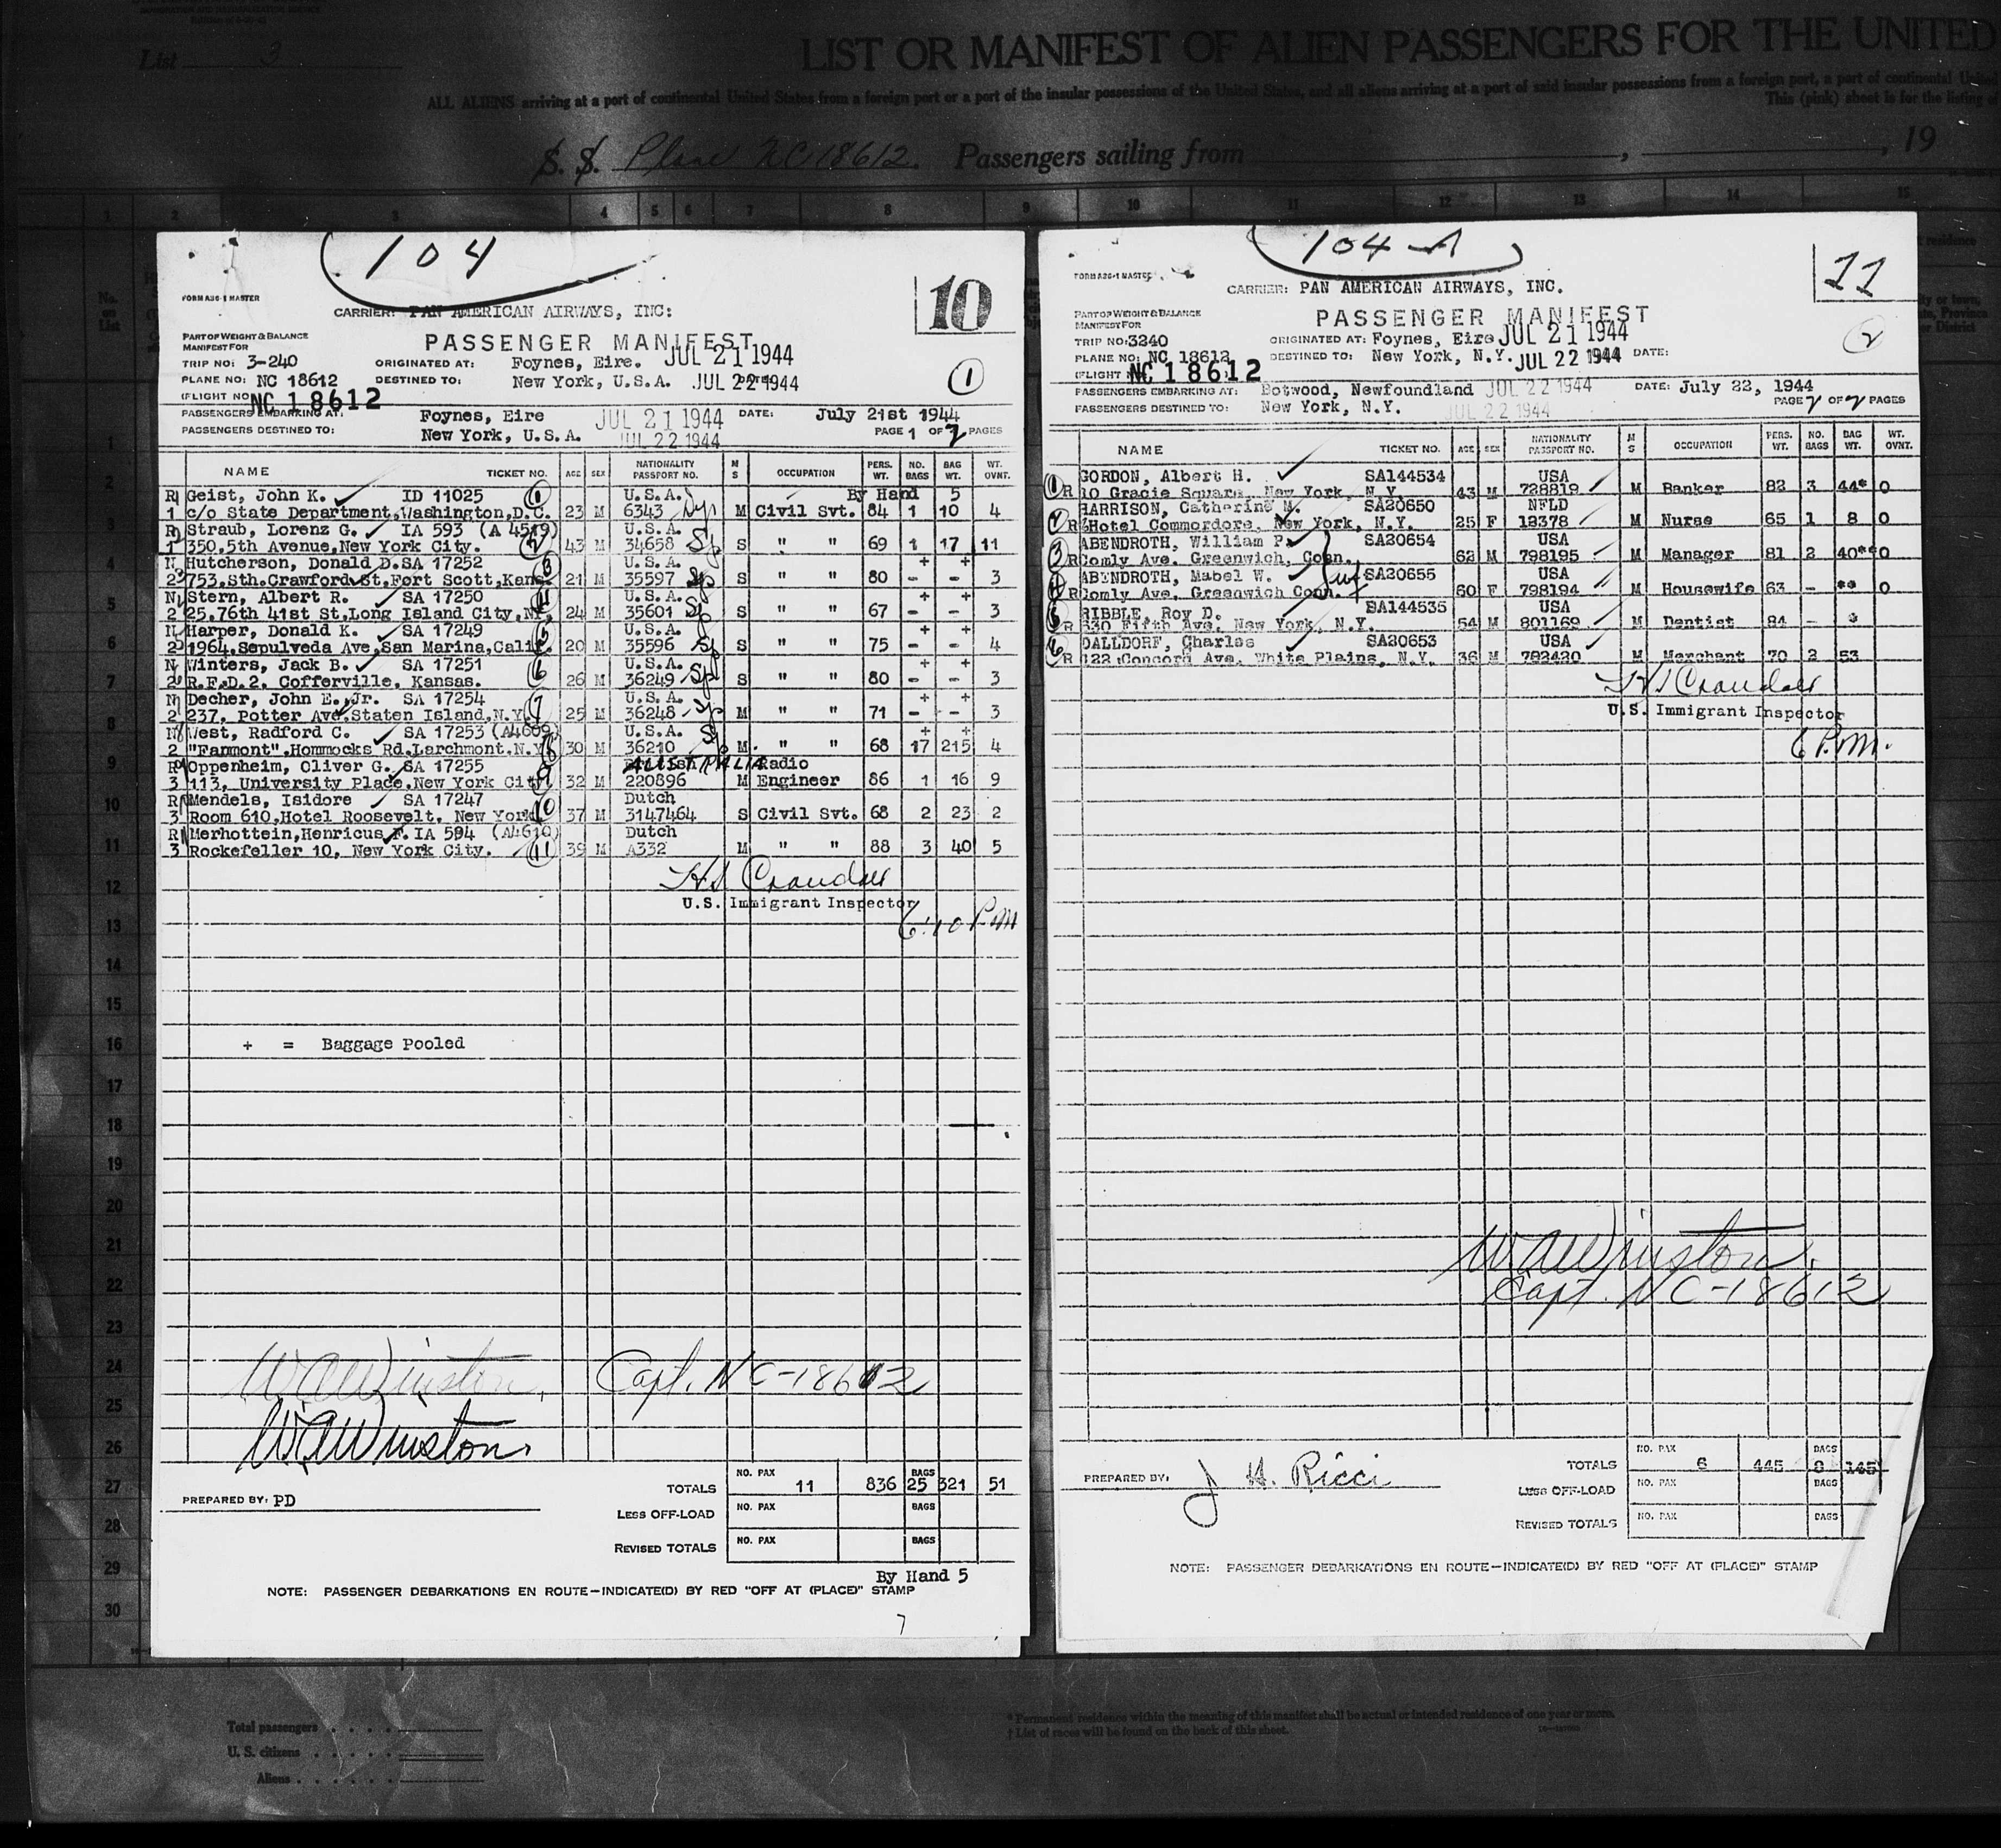 List 3
LIST OR MANIFEST OF ALIEN PASSENGERS FOR THE UNITED
ALL ALIENS arriving at a port of continental United States from a foreign port or a port of the insular possessions of the United States, and all aliens arriving at a port of said insular possessions from a foreign port, a part of continental United
This (pink) sheet is for the listing of
S. S. Plane NC 18612. Passengers sailing from , , 19
1 2 3 4 5 6 7 8 9 10 11 12 13 14 15
104
10
FORM A3G-1 MASTER
CARRIER: PAN AMERICAN AIRWAYS, INC:
PART OF WEIGHT & BALANCE
PASSENGER MANIFEST
MANIFEST FOR
TRIP NO: 3-240 ORIGINATED AT: Foynes, Eire. JUL 21 1944
PLANE NO: NC 18612 DESTINED TO: New York, U.S.A. JUL 22 1944
(FLIGHT NO NC 18612
1
PASSENGERS EMBARKING AT: Foynes, Eire JUL 21 1944 DATE: July 21st 1944
PASSENGERS DESTINED TO: New York, U.S.A. JUL 22 1944 PAGE 1 OF 2 PAGES
NAME TICKET NO. AGE SEX NATIONALITY PASSPORT NO. M S OCCUPATION PERS. WT. NO. BAGS BAG WT. WT. OVNT.
R Geist, John K. ID 11025 1 U.S.A. By Hand 5
1 c/o State Department, Washington, D.C. 23 M 6343 Dip M Civil Svt. 84 1 10 4
R Straub, Lorenz G. IA 593 (A 4519) U.S.A.
1 350, 5th Avenue, New York City. 2 43 M 34658 Sp S " " 69 1 17 11
N Hutcherson, Donald D. SA 17252 3 U.S.A. + +
2 753, Sth. Crawford St, Fort Scott, Kans. 21 M 35597 Sp S " " 80 - - 3
N Stern, Albert R. SA 17250 4 U.S.A. + +
2 25,76th 41st St, Long Island City, NY, 24 M 35601 Sp S " " 67 - - 3
N Harper, Donald K. SA 17249 5 U.S.A. + +
2 1964, Sepulveda Ave, San Marina, Calif. 20 M 35596 Sp S " " 75 - - 4
N Winters, Jack B. SA 17251 6 U.S.A. + +
2 R.F.D. 2, Cofferville, Kansas. 26 M 36249 Sp S " " 80 - - 3
N Decher, John E., Jr. SA 17254 7 U.S.A. + +
2 237, Potter Ave, Staten Island, N.Y. 25 M 36248 Sp M " " 71 - - 3
N West, Radford C. SA 17253 (A4609) U.S.A. + +
2 "Fanmont", Hommocks Rd. Larchmont. N.Y. 8 30 M 36210 Sp M. " " 68 17 215 4
R Oppenheim, Oliver G. SA 17255 AUSTRALIA Radio
3 113, University Place, New York City 9 32 M 220896 M Engineer 86 1 16 9
R Mendels, Isidore SA 17247 10 Dutch
3 Room 610, Hotel Roosevelt. New York 37 M 3147464 S Civil Svt. 68 2 23 2
R Merhottein, Henricus F. IA 594 (A4610) Dutch
3 Rockefeller 10, New York City. 11 39 M A332 M " " 88 3 40 5
H S Crandall
U.S. Immigrant Inspector
6:10 P.M
+ = Baggage Pooled
W. A. Winston, Capt. NC-18612
W. A. Winston.
TOTALS NO. PAX 11 836 BAGS 25 321 51
PREPARED BY: PD
LESS OFF-LOAD NO. PAX BAGS
REVISED TOTALS NO. PAX BAGS
By Hand 5
NOTE: PASSENGER DEBARKATIONS EN ROUTE—INDICATE(D) BY RED "OFF AT (PLACE)" STAMP
7
104-A
11
FORM A3G-1 MASTER
CARRIER: PAN AMERICAN AIRWAYS, INC.
PART OF WEIGHT & BALANCE
PASSENGER MANIFEST
MANIFEST FOR
2
TRIP NO: 3240 ORIGINATED AT: Foynes, Eire JUL 21 1944
PLANE NO: NC 18612 DESTINED TO: New York, N.Y. JUL 22 1944 DATE:
(FLIGHT NC 18612
PASSENGERS EMBARKING AT: Botwood, Newfoundland JUL 22 1944 DATE: July 22, 1944
PASSENGERS DESTINED TO: New York, N.Y. JUL 22 1944 PAGE 2 OF 2 PAGES
NAME TICKET NO. AGE SEX NATIONALITY PASSPORT NO. M S OCCUPATION PERS. WT. NO. BAGS BAG WT. WT. OVNT.
GORDON, Albert H. SA144534 USA
1 R 10 Gracie Square, New York, N.Y. 43 M 728819 M Banker 82 3 44* 0
HARRISON, Catherine M. SA20650 NFLD
2 R Hotel Commordore, New York, N.Y. 25 F 12378 M Nurse 65 1 8 0
ABENDROTH, William P. SA20654 USA
3 R Comly Ave. Greenwich, Conn. 62 M 798195 M Manager 81 2 40** 0
ABENDROTH, Mabel W. SA20655 USA
4 R Comly Ave. Greenwich Conn. 60 F 798194 M Housewife 63 - ** 0
RIBBLE, Roy D. SA144535 USA
5 R 630 Fifth Ave. New York, N.Y. 54 M 801169 M Dentist 84 - *
DALLDORF, Charles SA20653 USA
6 R 122 Concord Ave. White Plains, N.Y. 36 M 792420 M Merchant 70 2 53
H S Crandall
U.S. Immigrant Inspector
6 P.M.
W. A. Winston.
Capt. NC-18612
PREPARED BY: J H. Ricci
TOTALS NO. PAX 6 445 BAGS 8 145
LESS OFF-LOAD NO. PAX BAGS
REVISED TOTALS NO. PAX BAGS
NOTE: PASSENGER DEBARKATIONS EN ROUTE—INDICATE(D) BY RED "OFF AT (PLACE)" STAMP
No. on List
1
2
3
4
5
6
7
8
9
10
11
12
13
14
15
16
17
18
19
20
21
22
23
24
25
26
27
28
29
30
Total passengers
U. S. citizens
Aliens
* Permanent residence within the meaning of this manifest shall be actual or intended residence of one year or more.
† List of races will be found on the back of this sheet.